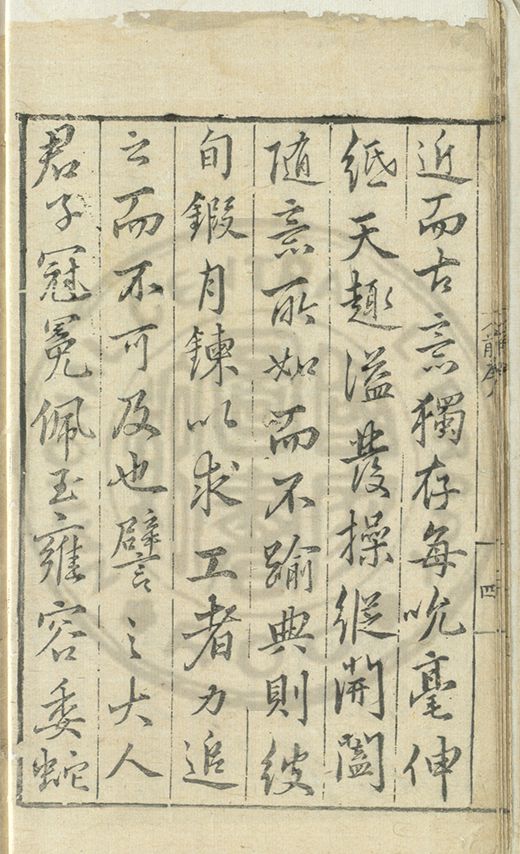 近而古意獨存每吮毫伸
紙天趣溢發操縱開闔
随意所如而不踰典則彼
旬鍛月鍊以求工者力追
之而不可及也譬之大人
君子冠冕佩玉雍容委蛇
四